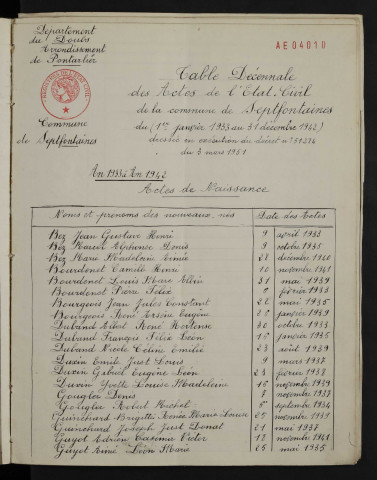 Département
du Doubs
Arrondissement
de Pontarlier
AE04018
Table Décennale
des Actes de l'Etat-Civil
de la commune de Septfontaines
du (1er janvier 1933 au 31 décembre 1942)
dressée en exécution du décret n° 51284
du 3 mars 1951
Commune
de Septfontaines
An 1933 à An 1942
Actes de Naissance
Noms et prénoms des nouveaux-nés Date des Actes
Bez Jean Gustave Henri 9 avril 1933
Bez Marcel Alphonse Denis 9 octobre 1935
Bez Marie Madeleine Aimée 21 décembre 1940
Bourdenet Camille Henri 10 novembre 1941
Bourdenet Louis Marie Albin 31 mai 1939
Bourdenet Pierre Félix février
Bourgeois Jean Jules Constant 22 mai 1935
Bourgeois René Arsène Eugène 12 janvier 1939
Duband Albert René Hortense 30 octobre 1933
Duband François Félix Léon janvier 1935
Duband Nicole Céline Emilie 23 août 1939
Duxin Emile Just Louis 9 mars 1937
Duxin Gabriel Eugène Léon 23 février 1938
Duxin Yvette Louise Madeleine 10 novembre 1939
Gouglet Denis 8 novembre 1937
Robert Michel septembre 1934
Guinchard Brigitte Renée Marie Louise 25 novembre 1939
Guinchard Joseph Just Donat 21 mai 1937
Guyot Adrien Casimir Victor 12 novembre 1941
Guyot Aimé Léon Marie 25 mai 1935